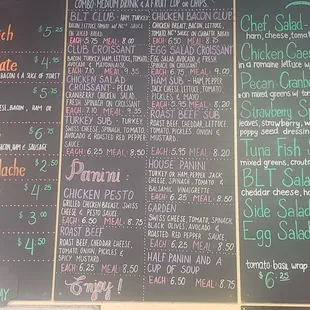 COMBO- MEDIUM DRINK & A FRUIT CUP OR CHIPS.
ich
$5.25
ate
$4.25
BACON & A SLICE OF TOAST
$5.75
BACON, HAM OR
$6.75
BACON, HAM OR SAUSAGE
ache
$2.50
$4.25
$3.00
$4.50
BLT CLUB - HAM, TURKEY,
IN SUN DRIED
CLUB CROISSANT
BACON, TURKEY, HAM, LETTUCE, TOMATO,
AVOCADO &
EACH 7.10 MEAL:
CHICKEN SALAD
CROISSANT - PECAN
CRANBERRY CHICKEN SALAD
FRESH SPINACH ON CROISSANT
EACH 7.10 MEAL:
TURKEY SUB - TURKEY,
SWISS CHEESE, SPINACH, TOMATO,
AVOCADO & ROASTED RED PEPPER
SAUCE.
EACH 6.25 MEAL: 8.50
Panini:
CHICKEN PESTO
GRILLED CHICKEN BREAST, SWISS
CHEESE & PESTO SAUCE.
EACH 6.50 MEAL: 8.75
ROAST BEEF
ROAST BEEF, CHEDDAR CHEESE,
TOMATO, ONION, PICKLES &
SPICY MUSTARD
EACH 6.25 MEAL: 8.50
Enjoy!
CHICKEN BACON CLUB
CHICKEN BREAST, BACON, LETTUCE,
TOMATO, & CHIPOTLE MAYO
EACH 6.75 MEAL: 9.00
EGG SALAD CROISSANT
EGG SALAD, AVOCADO &
FRESH SPINACH ON A CROISSANT
EACH 6.75 MEAL:
HAM SUB - HAM, PEPPER
JACK CHEESE, LETTUCE, TOMATO,
& MAYO
EACH 5.95 MEAL: 8.20
ROAST BEEF SUB
ROAST BEEF, CHEDDAR, LETTUCE,
TOMATO, PICKLES, ONION &
MUSTARD.
EACH 6.25 MEAL: 8.50
HOUSE PANINI
TURKEY OR HAM, PEPPER JACK
CHEESE, SPINACH, TOMATO &
BALSAMIC VINAIGRETTE
EACH 6.25 MEAL: 8.50
GARDEN
SWISS CHEESE, TOMATO, SPINACH,
BLACK OLIVES, AVOCADO &
ROASTED RED PEPPER SAUCE.
EACH 6.25 MEAL: 8.50
HALF PANINI AND A
CUP OF SOUP
EACH: 6.50 MEAL: 8.75
Chef Salad-
ham, cheese, tomato
Chicken Caes
in a romaine lettuce w
Pecan-Cranb
on mixed greens w/
Strawberry Sp
cheese, strawberry, w
poppy seed dressing
Tuna Fish S
mixed greens, crout
BLT Salad
cheddar cheese, ho
Side Salad
Egg Salad
tomato-basil wrap
$6.25